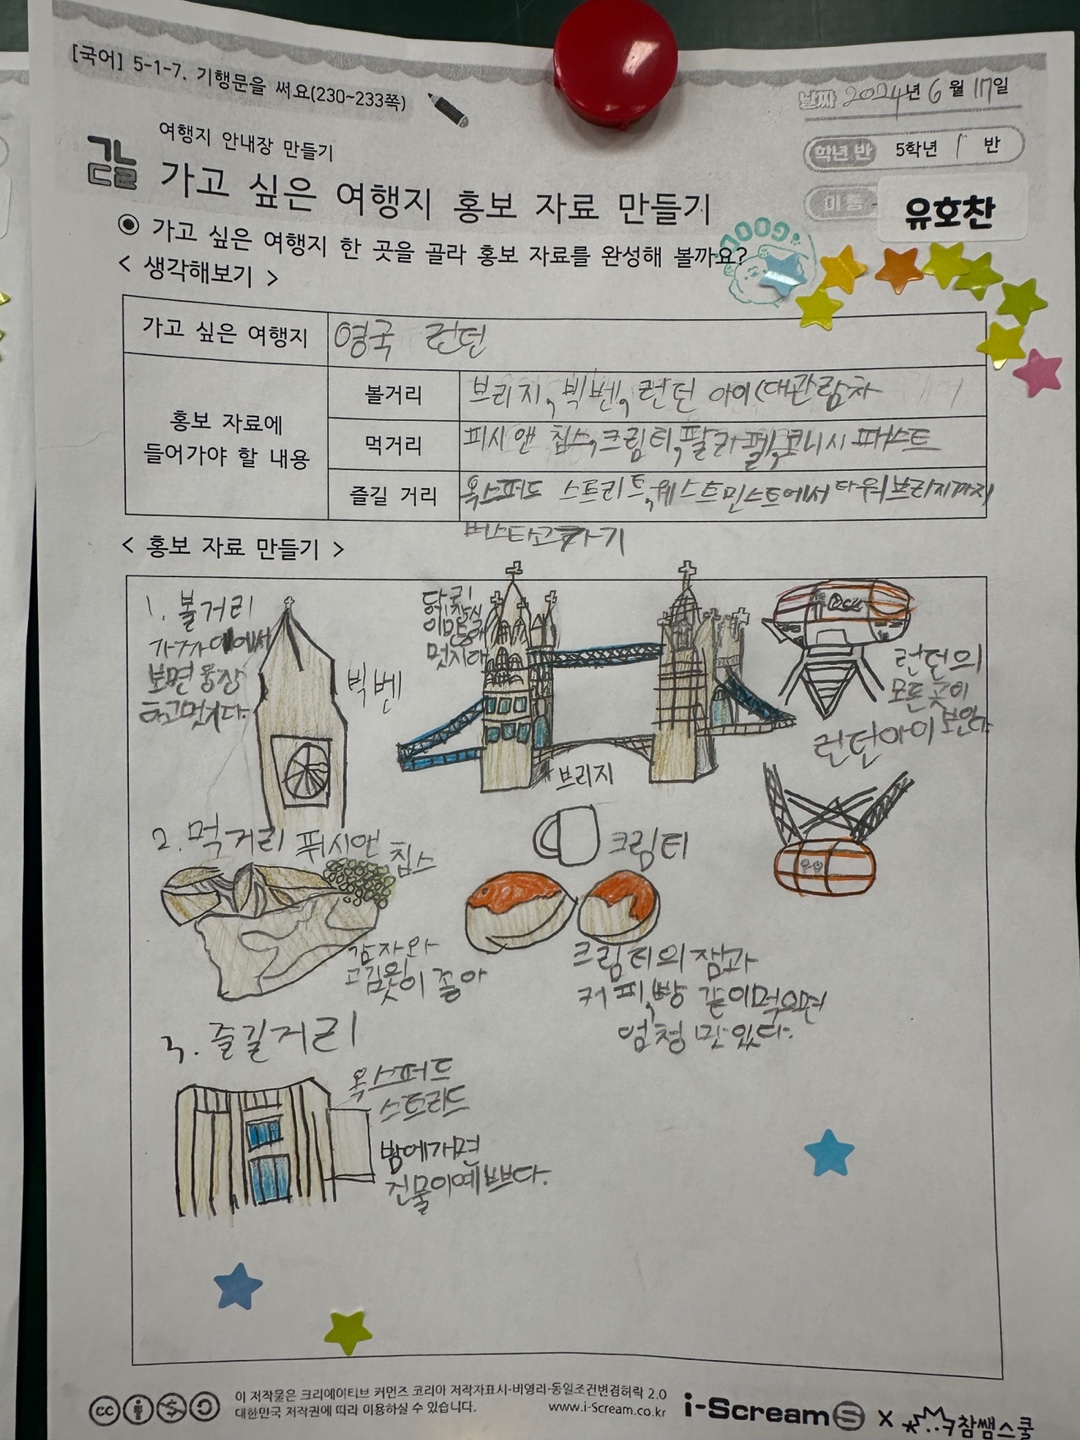 [국어] 5-1-7. 기행문을 써요(230~233쪽)
날짜 2024년 6월 17일
학년 반 5학년 1 반
이름 유호찬
갈
여행지 안내장 만들기
가고 싶은 여행지 홍보 자료 만들기
GOOD
◉ 가고 싶은 여행지 한 곳을 골라 홍보 자료를 완성해 볼까요?
< 생각해보기 >
가고 싶은 여행지 영국 런던
홍보 자료에
들어가야 할 내용
볼거리 브리지, 빅벤, 런던 아이(대관람차
먹거리 피시앤 칩스, 크림티, 팔라펠, 코니시 패스트
즐길 거리 옥스퍼드 스트리트, 웨스트민스트에서 타워브리지까지
버스타고 가기
< 홍보 자료 만들기 >
1. 볼거리
가까이에서
보면 웅장
하고 멋지다.
빅벤
멋지다
브리지
런던의
모든 곳이
보인다
런던아이
2. 먹거리
퓌시앤
칩스
감자와
궁합이 좋아
크림티
크림티의 잼과
커피, 빵 같이먹으면
엄청 맛있다.
3. 즐길거리
옥스퍼드
스트리드
밤에가면
건물이예쁘다.
이 저작물은 크리에이티브 커먼즈 코리아 저작자표시-비영리-동일조건변경허락 2.0
대한민국 저작권에 따라 이용하실 수 있습니다.
www.i-Scream.co.kr
i-Scream S X 참쌤스쿨